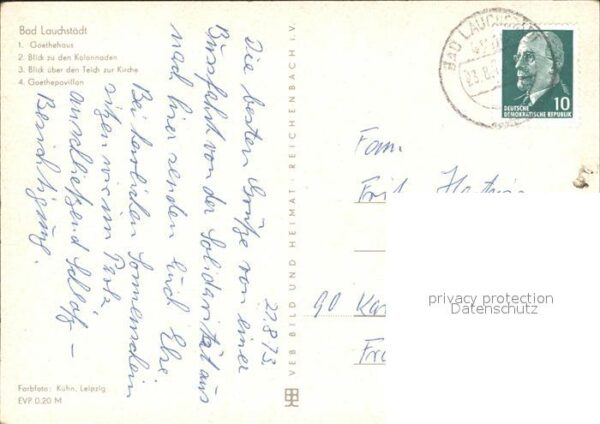 Bad Lauchstädt
1. Goethehaus
2. Blick zu den Kolonnaden
3. Blick über den Teich zur Kirche
4. Goethepavillon
22.8.73.
Die besten Grüße von einer
Busfahrt von der Solidarität aus
nach hier senden Euch
Bei herrlichem Sonnenschein
sitzen wir im Park.
anschließend Schloß-
Besichtigung.
Farbfoto: Kühn, Leipzig
EVP 0.20 M
VEB BILD UND HEIMAT · REICHENBACH I. V.
BAD LAUCHSTÄDT
23.8.
DEUTSCHE
DEMOKRATISCHE REPUBLIK
10
Fam
privacy protection
Datenschutz
90